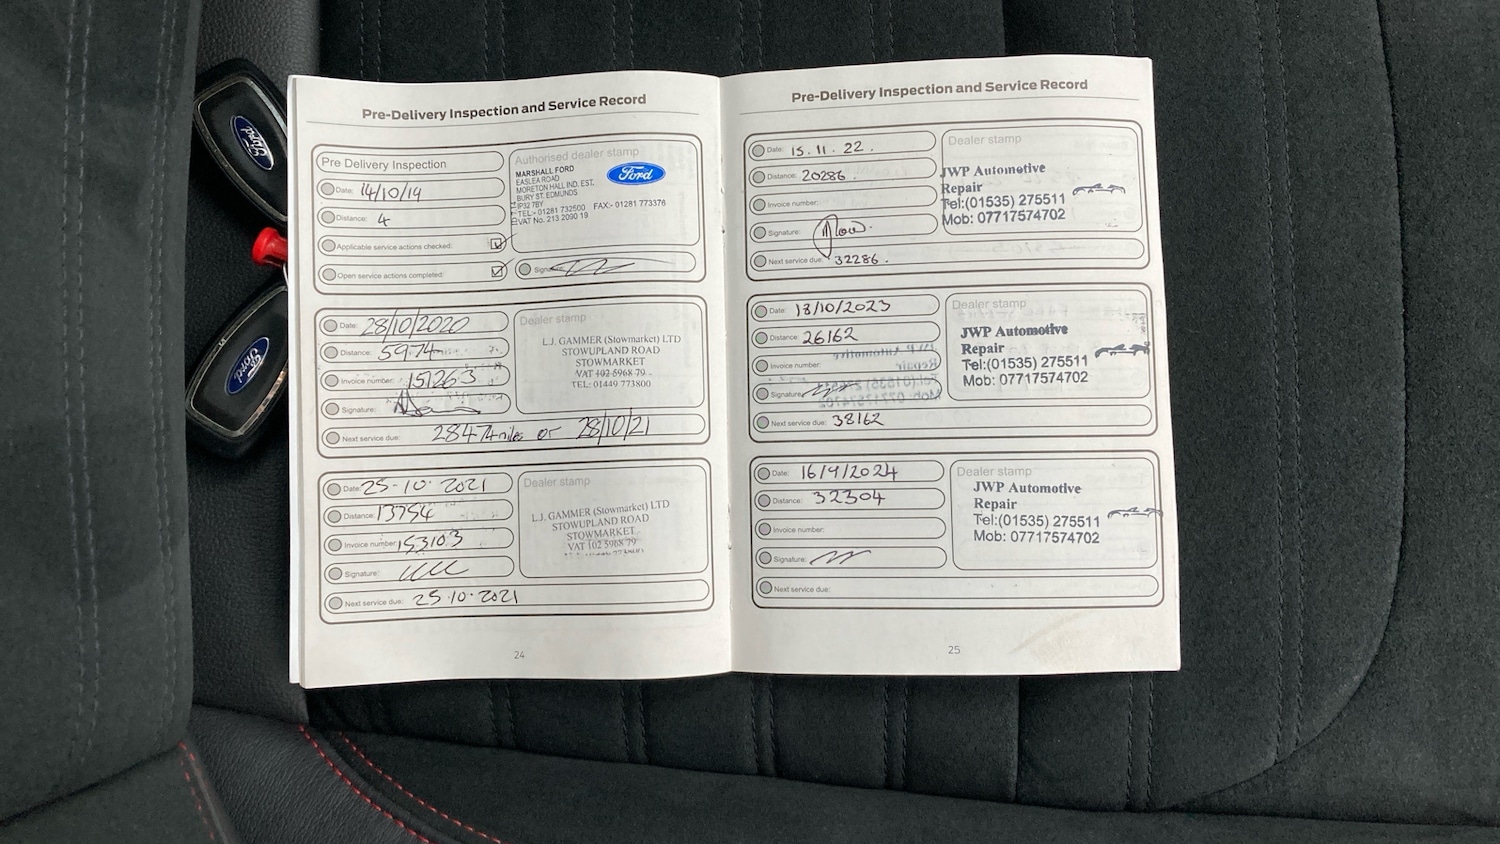 Pre-Delivery Inspection and Service Record
Pre Delivery Inspection
Date: 14/10/19
Distance: 4
Applicable service actions checked:
Open service actions completed:
Authorised dealer stamp
MARSHALL FORD
EASLEA ROAD
MORETON HALL IND. EST.
BURY ST. EDMUNDS
IP32 7BY
TEL:- 01281 732500 FAX:- 01281 773376
VAT No. 213 2090 19
Ford
Signature:
Date: 28/10/2020
Distance: 5974
Invoice number: 151263
Signature:
Next service due: 28474miles or 28/10/21
Dealer stamp
L.J. GAMMER (Stowmarket) LTD
STOWUPLAND ROAD
STOWMARKET
VAT 102 5968 79
TEL: 01449 773800
Date: 25-10-2021
Distance: 13754
Invoice number: 153103
Signature:
Next service due: 25-10-2021
Dealer stamp
L.J. GAMMER (Stowmarket) LTD
STOWUPLAND ROAD
STOWMARKET
VAT 102 5968 79
24
Pre-Delivery Inspection and Service Record
Date: 15.11.22.
Distance: 20286.
Invoice number:
Signature:
Next service due: 32286.
Dealer stamp
JWP Automotive
Repair
Tel:(01535) 275511
Mob: 07717574702
Date: 18/10/2023
Distance: 26162
Invoice number:
Signature:
Next service due: 38162
Dealer stamp
JWP Automotive
Repair
Tel:(01535) 275511
Mob: 07717574702
Date: 16/9/2024
Distance: 32304
Invoice number:
Signature:
Next service due:
Dealer stamp
JWP Automotive
Repair
Tel:(01535) 275511
Mob: 07717574702
25
Ford
Ford